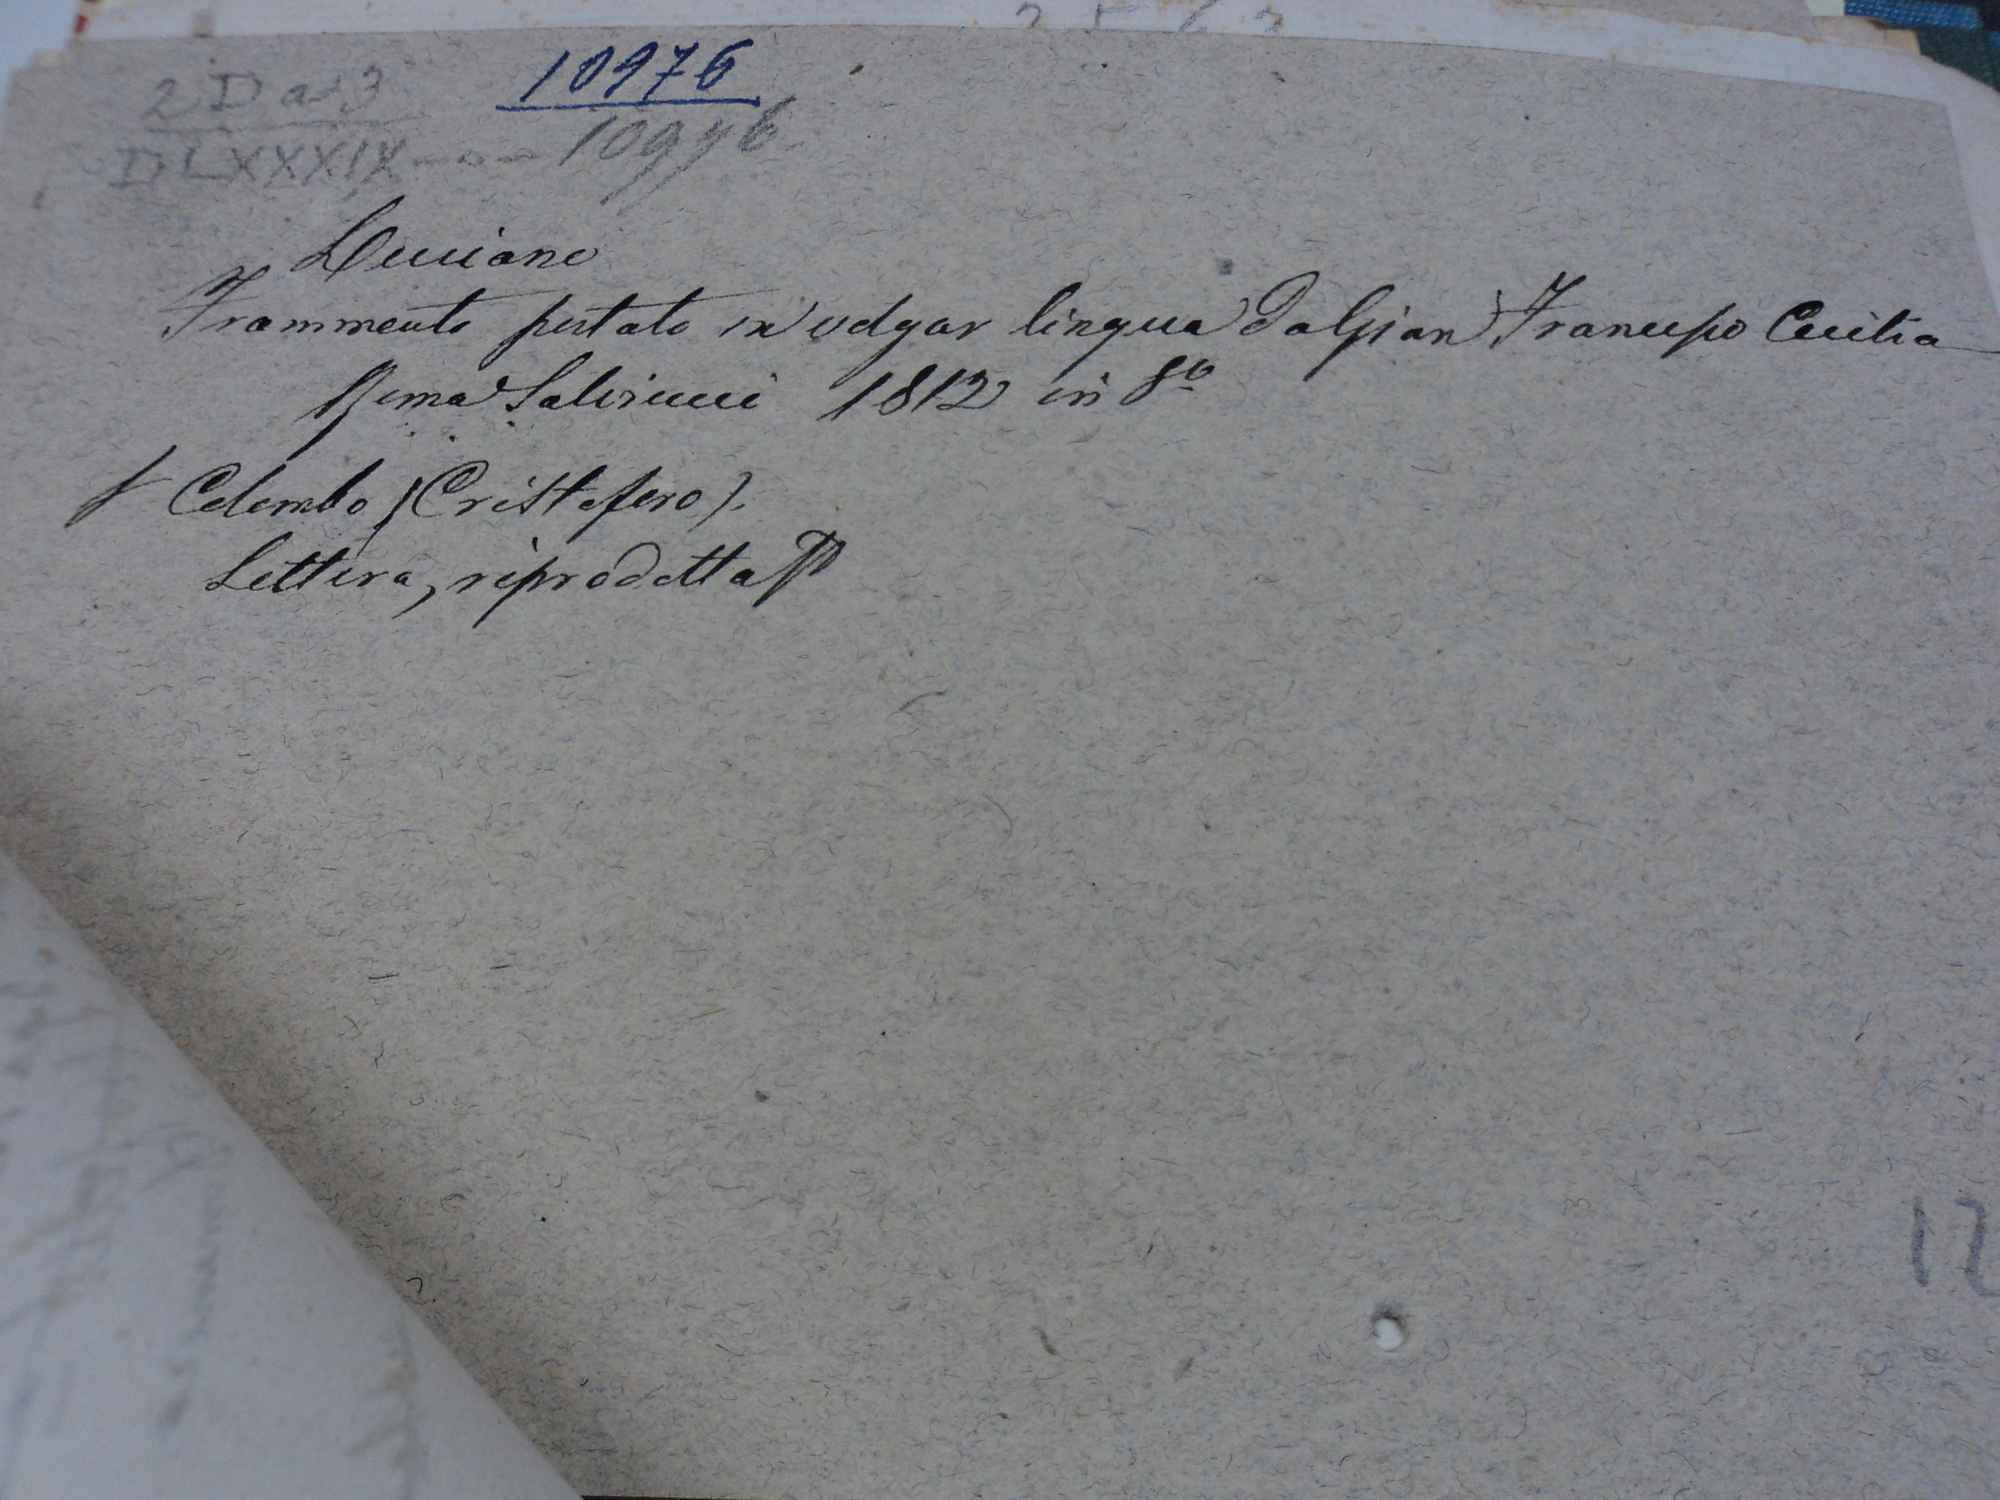 2563
2 D a 3
10976
DLXXXIX 10976
Luciano
Frammento portato in volgar lingua da Gian Francesco Cecilia
Roma Salviucci 1812 in 8º
Colombo (Cristoforo).
Lettera, riprodotta
12